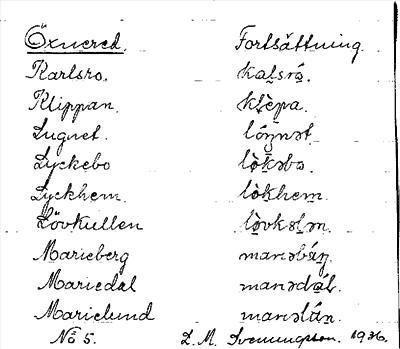 Öxnered. Fortsättning.
Karlsro. kaḷsró.
Klippan. kḷèpa.
Lugnet. lóŋnət
Lyckebo lòkəbo
Lyckhem. lòkhem
Lövkullen lòvkələn
Marieberg marəbárj
Mariedal marədál
Marielund marəlún
No 5. 1936.